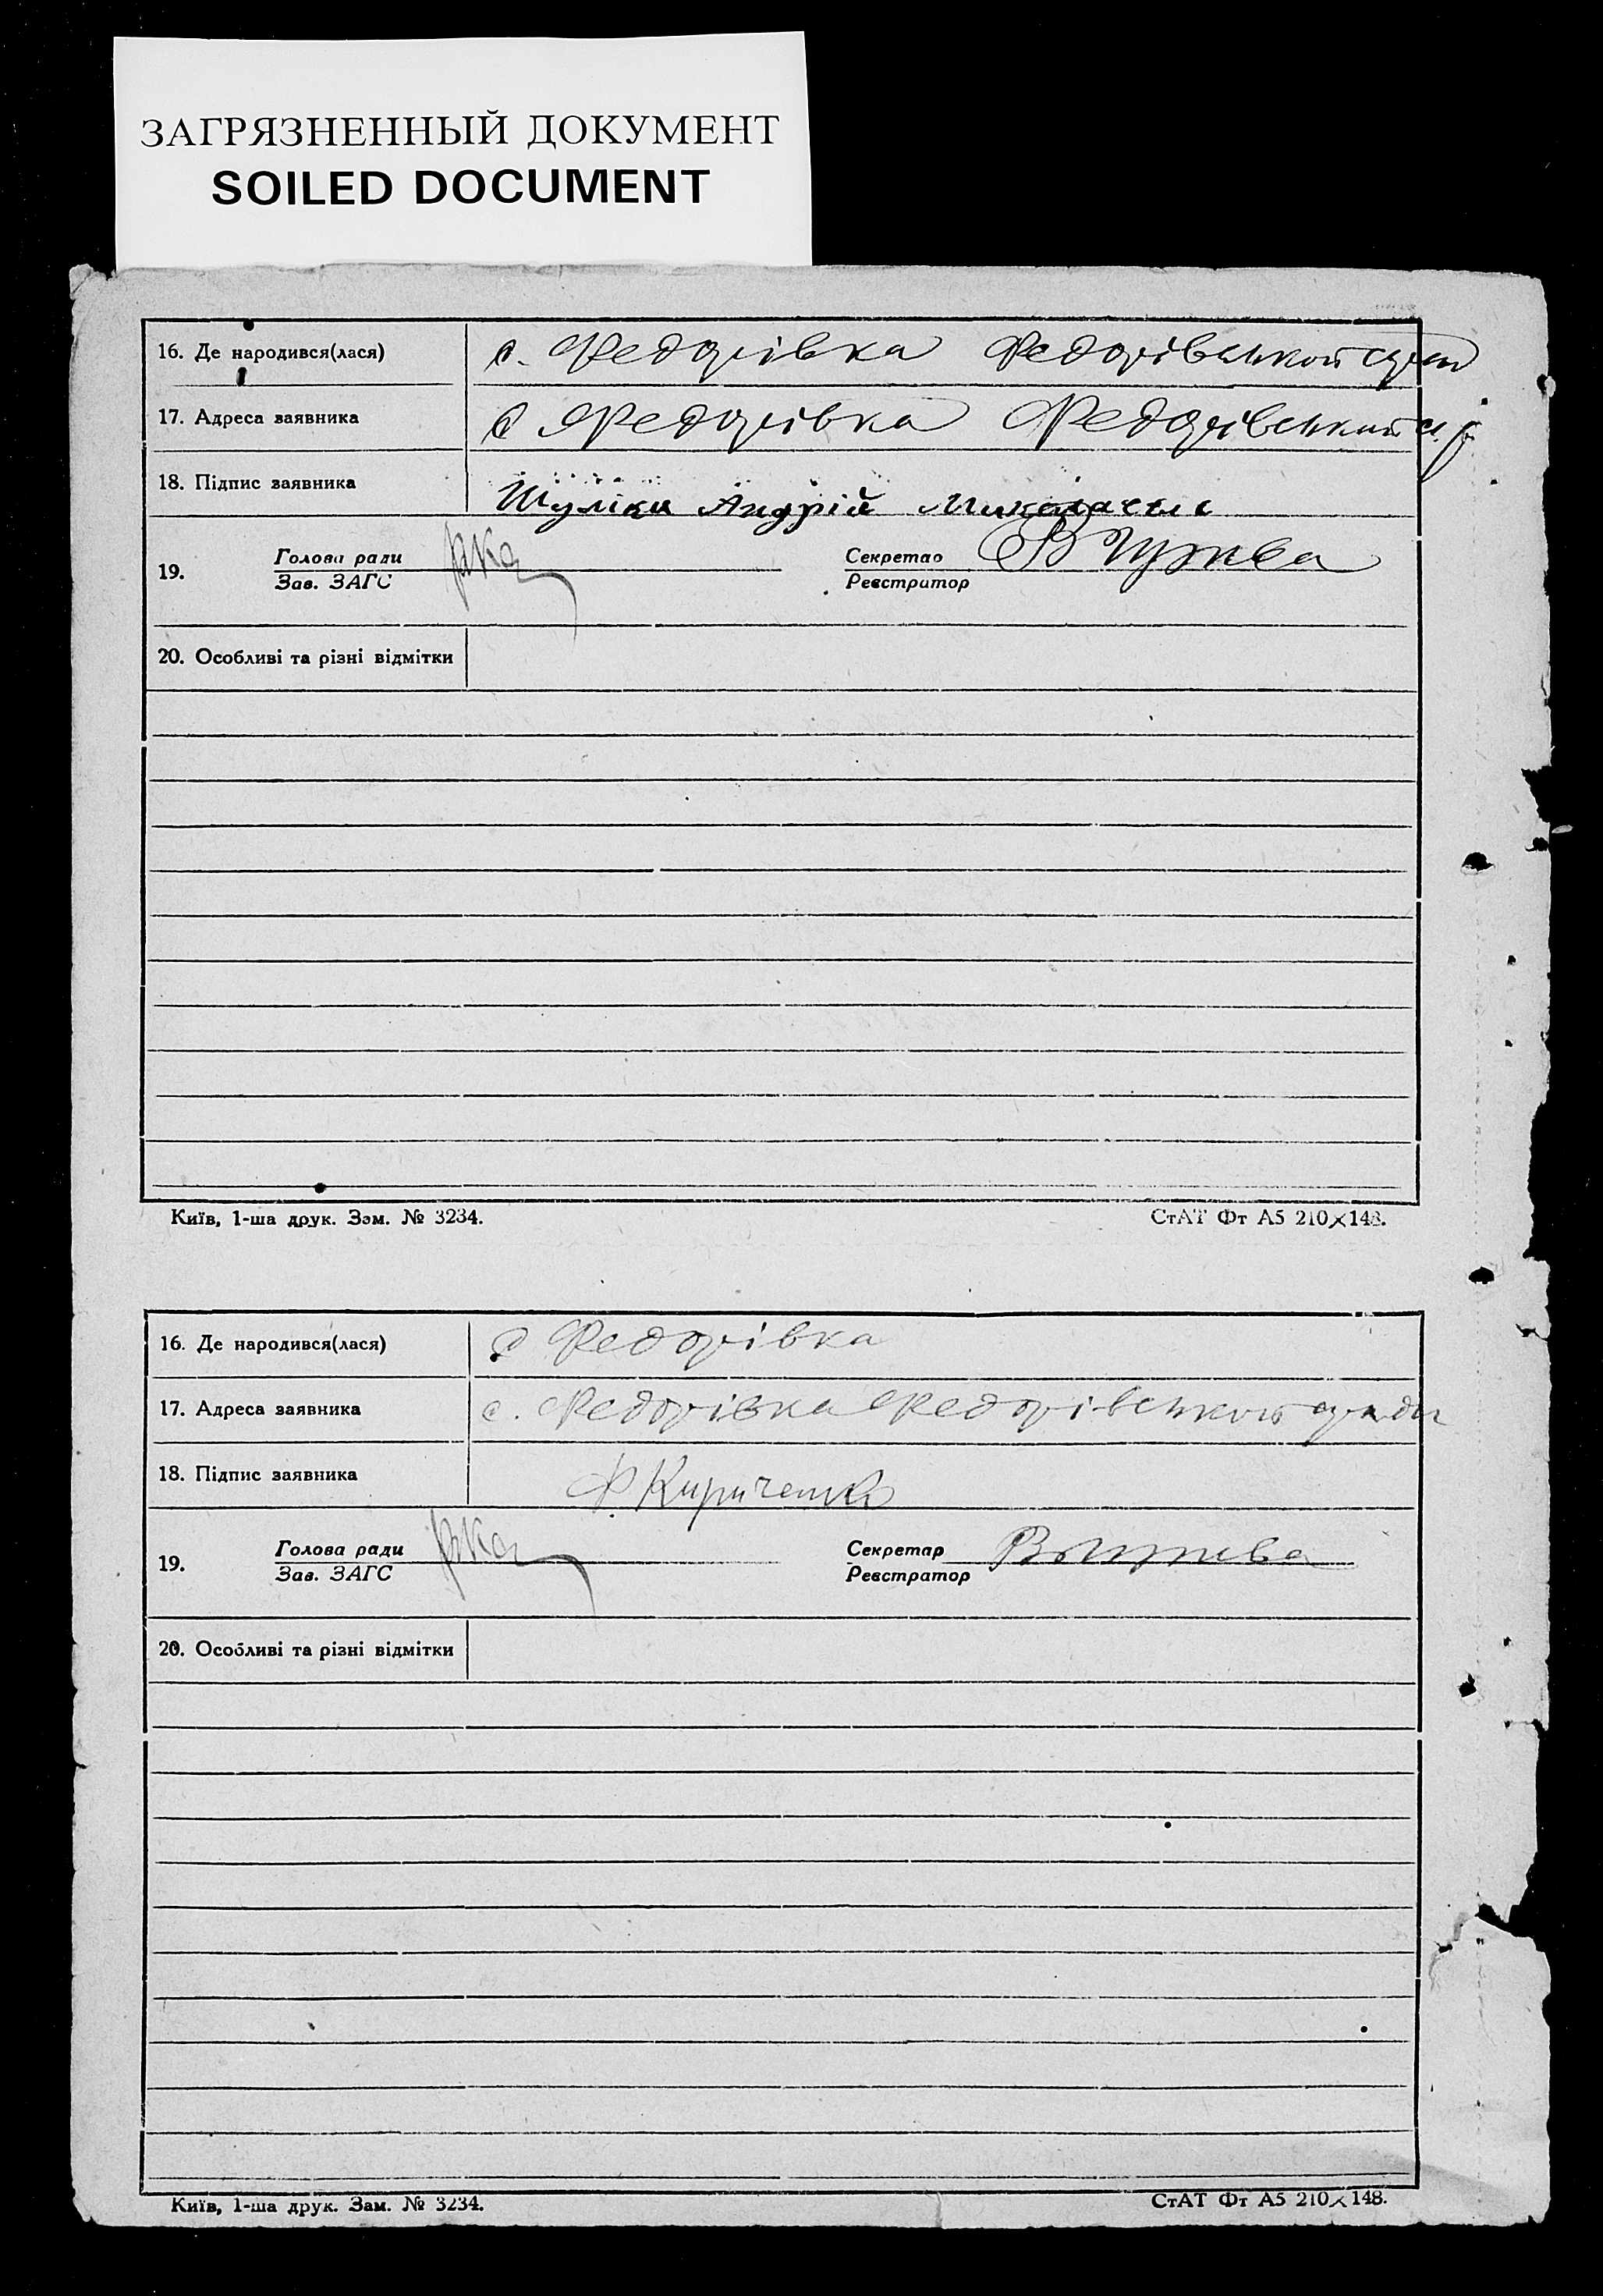 ЗАГРЯЗНЕННЫЙ ДОКУМЕНТ
SOILED DOCUMENT
16. Де народився(лася) с. Федорівка Федорівської
17. Адреса заявника с Федорівка Федорівської с. р
18. Підпис заявника Шуліка Андрій
19. Голова ради Секретар
Зав. ЗАГС Реєстратор
20. Особливі та різні відмітки
Київ, 1-ша друк. Зам. № 3234. СтАТ Фт А5 210×148.
16. Де народився(лася) с Федорівка
17. Адреса заявника с. Федорівка Федорівської сради
18. Підпис заявника Ф. Кириченко
19. Голова ради Секретар
Зав. ЗАГС Реєстратор
20. Особливі та різні відмітки
Київ, 1-ша друк. Зам. № 3234. СтАТ Фт А5 210×148.